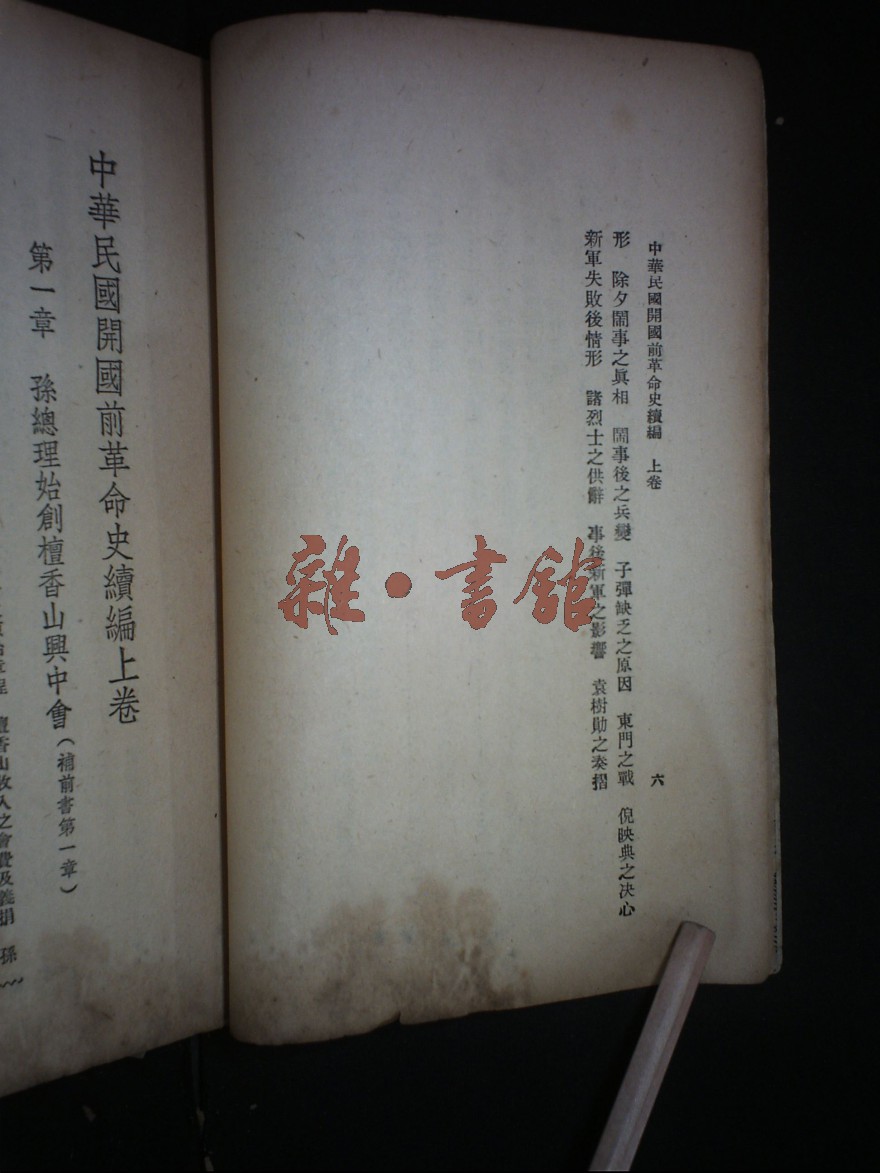 中華民國開國前革命史續編　上卷　六
形　除夕鬧事之眞相　鬧事後之兵變　子彈缺乏之原因　東門之戰　倪映典之決心
新軍失敗後情形　諸烈士之供辭　事後新軍之影響　袁樹勛之奏摺
雜·書館
中華民國開國前革命史續編上卷
第一章　孫總理始創檀香山興中會（補前書第一章）
章程　檀香山收入之會費及義捐　孫